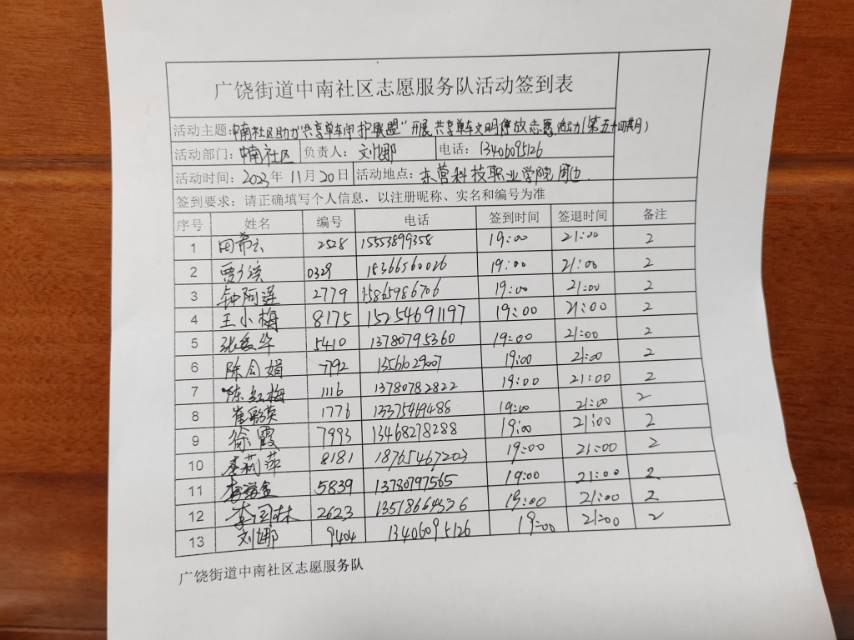 广饶街道中南社区志愿服务队活动签到表
活动主题：中南社区助力"共享单车守护联盟"开展共享单车文明停放志愿活动(第五十四期)
活动部门：中南社区 负责人：刘娜 电话：13406095126
活动时间：2023年11月20日 活动地点：东营科技职业学院周边
签到要求：请正确填写个人信息，以注册昵称、实名和编号为准
序号 姓名 编号 电话 签到时间 签退时间 备注
1 田希云 2528 15553899358 19:00 21:00 2
2 0329 15366560026 19:00 21:00 2
3 钟阿莲 2779 15865986706 19:00 21:00 2
4 王小梅 8175 15254691197 19:00 21:00 2
5 张秀华 5410 13780795360 19:00 21:00 2
6 陈金娟 7792 19:00 21:00 2
7 陈红梅 1116 13780782822 19:00 21:00 2
8 1776 13375469488 19:00 21:00 2
9 徐霞 7993 13468278288 19:00 21:00 2
10 李莉萍 8181 18765467203 19:00 21:00 2
11 5839 13780797565 19:00 21:00 2
12 李国林 2623 13518664326 19:00 21:00 2
13 刘娜 9404 13406095126 19:00 21:00 2
广饶街道中南社区志愿服务队